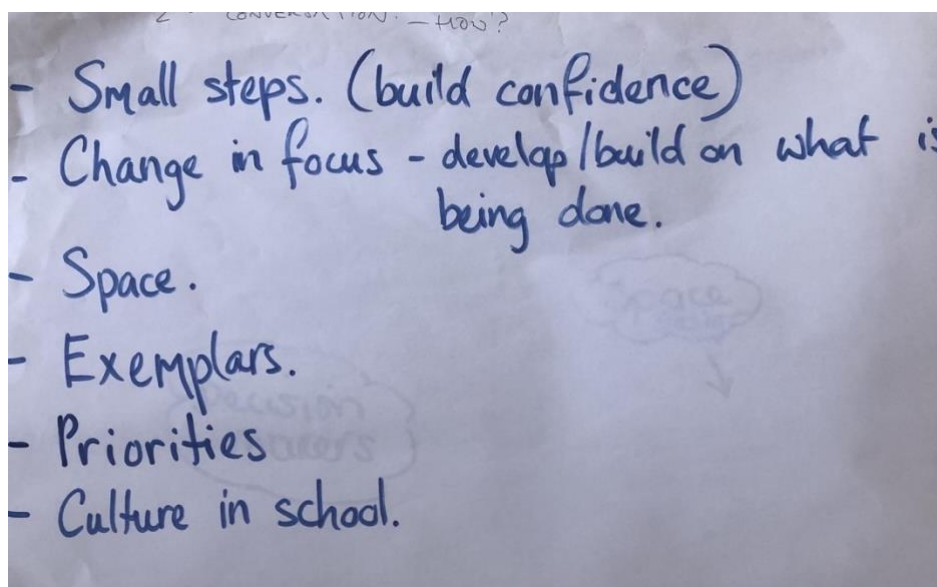 2 CONVERSATION. - HOW?
- Small steps. (build confidence)
- Change in focus - develop/build on what is
being done.
- Space.
- Exemplars.
- Priorities
- Culture in school.